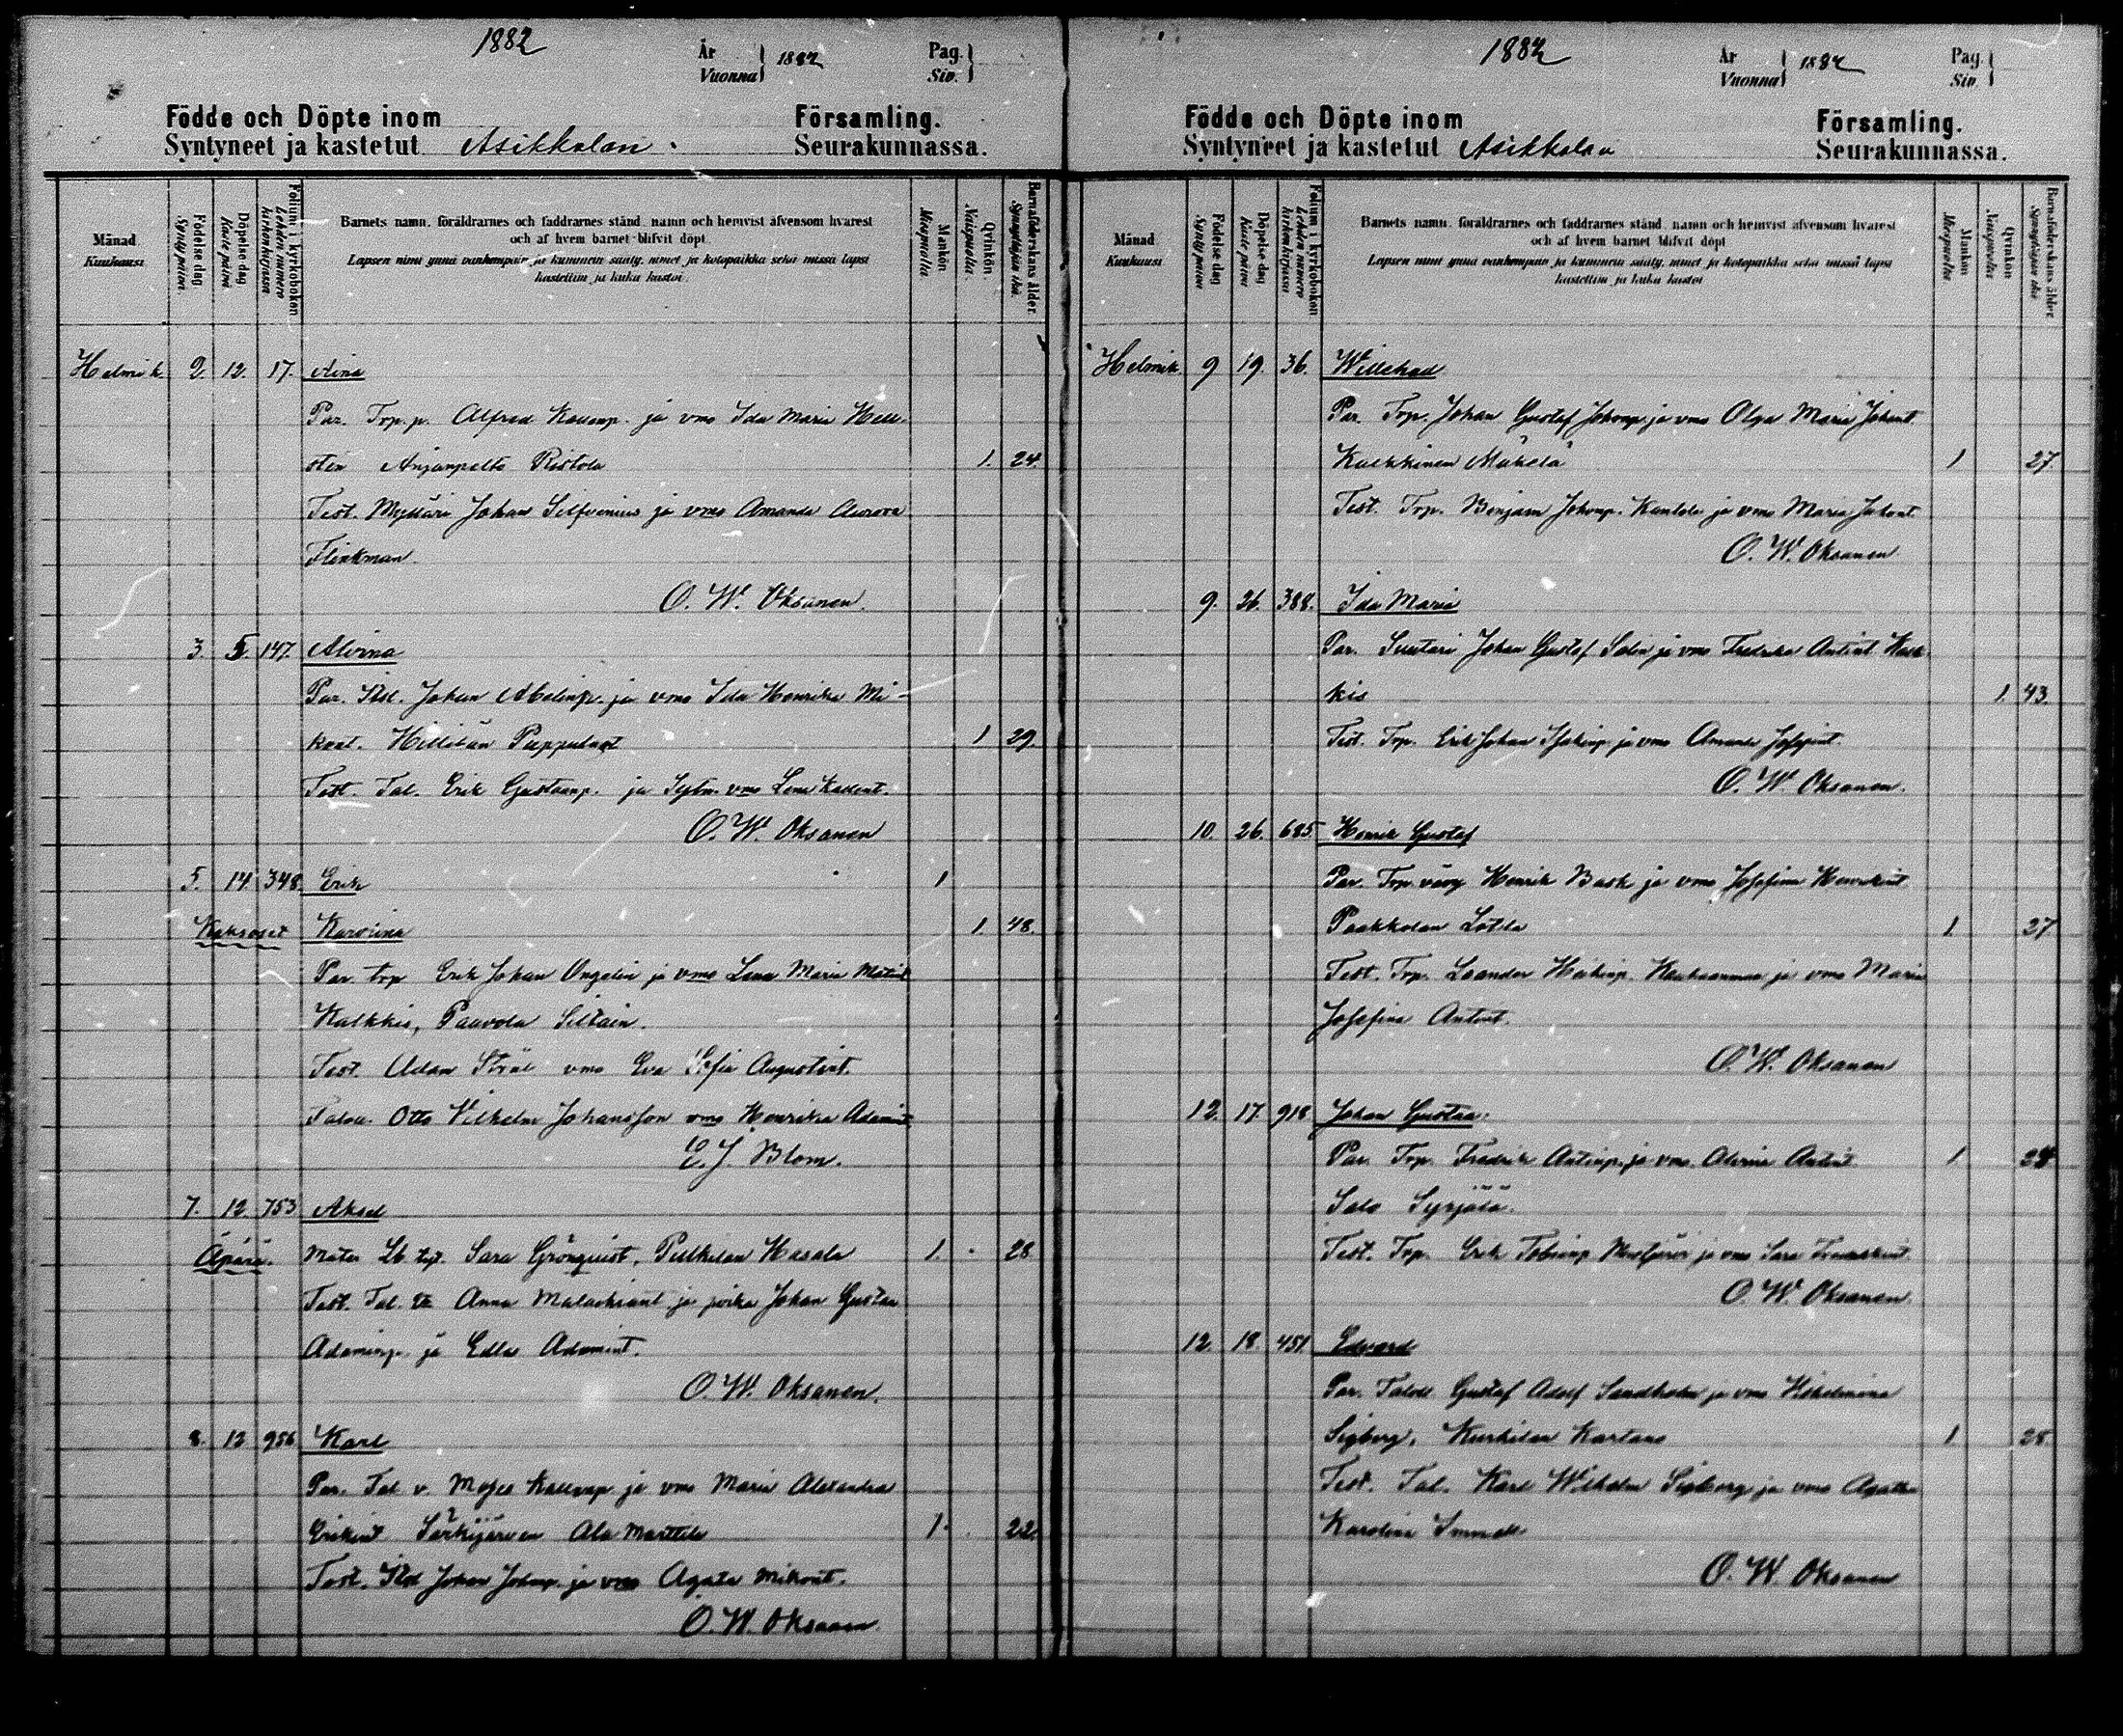 1882
År
Vuonna
1882
Pag.
Siv.
Födde och Döpte inom
Församling.
Syntyneet ja kastetut Asikkalan
Seurakunnassa.
Månad
Kuukausi
Födelse dag
Syntypäivä.
Döpelse dag
Kastepäivä
Folium i kyrkoboken
Lehden numero kirkonkirjassa
Barnets namn, föräldrarnes och faddrarnes stånd, namn och hemvist äfvensom hvarest
och af hvem barnet blifvit döpt.
Lapsen nimi ynnä vanhempain ja kummein sääty, nimet ja kotopaikka sekä missä lapsi
kastettiin ja kuka kastoi.
Mankön
Miespuolia
Qvinkön
Naispuolia
Barnaföderskans ålder.
Synnyttäjän ikä.
Helmik. 2. 12. 17. Aina
Par. Trp.p. Alfred Kallenp. ja vmo Ida Maria Hell-
sten Anjanpelto Ristola 1. 24.
Test. Mylläri Johan Silfvenius ja vmo Amanda Aurora
Flinkman.
O. W. Oksanen.
3. 5. 147. Alvina
Par. Itsl. Johan Abelinp. ja vmo Ida Henrika Mi-
kont. Hillilän 1 29.
Test. Tal. Erik Gustaanp. ja vmo Lena Kallent.
O. W. Oksanen
5. 14 348 Erik 1
Kaksoset Karolina 1. 48.
Par. trp Erik Johan Ongelin ja vmo Lena Maria Matint
Kalkkis, Paavola Siltain.
Test. Adam Strål vmo Eva Sofia Augustint.
Talon. Otto Vilhelm Johansson vmo Henrika Adamint
E. J. Blom.
7. 12. 753 Aksel
Äpärä. Mater Lb. tyt. Sara Grönquist, Pulkkilan Kasala 1. 28
Test. Tal. Anna Malachiant. ja poika Johan Gustaa
Adaminp. ja Edla Adamint.
O. W. Oksanen.
8. 12 956 Karl
Par. Tal. v. Moses Kallenp. ja vmo Maria Alexandra
Erikint Särkijärven Ala Marttila 1. 22.
Test. Itsl Johan Johanp. ja vmo Agata Mikont.
O. W. Oksanen
1882
År
Vuonna
1882
Pag.
Siv.
Födde och Döpte inom
Församling.
Syntyneet ja kastetut Asikkalan
Seurakunnassa.
Månad
Kuukausi
Födelse dag
Syntypäivä
Döpelse dag
Kastepäivä
Folium i kyrkoboken
Lehden numero kirkonkirjassa
Barnets namn, föräldrarnes och faddrarnes stånd, namn och hemvist äfvensom hvarest
och af hvem barnet blifvit döpt
Lapsen nimi ynnä vanhempain ja kummein sääty, nimet ja kotopaikka sekä missä lapsi
kastettiin ja kuka kastoi
Mankön
Miespuolia
Qvinkön
Naispuolia
Barnaföderskans ålder.
Synnyttäjän ikä
Helmik. 9 19. 36. Willehad
Par. Trp. Johan Gustaf Johanp. ja vmo Olga Maria Johant.
Kalkkinen Mäkelä 1 27.
Test. Trp. Benjam Johanp. Kantola ja vmo Maria Johant.
O. W. Oksanen
9. 26. 388. Ida Maria
Par. Suutari Johan Gustaf Salin ja vmo Fredrika Antint Kalk
kis 1. 43.
Test. Trp. Erik Johan ja vmo Amanda
O. W. Oksanen.
10. 26. 685. Henrik Gustaf
Par. Trp. Henrik Bask ja vmo Josefina Henrikint
Paakkolan Lötilä 1 27
Test. Trp. Leander Heikinp. ja vmo Maria
Josefina Antint.
O. W. Oksanen
12. 17. 918 Johan Gustaa.
Par. Trp. Fredrik Antinp. ja vmo Alvina Antint 1 28
Salo Syrjälä.
Test. Trp. Erik ja vmo Sara
O. W. Oksanen.
12. 18. 451. Edvard
Par. Taloll. Gustaf Adolf Sandholm ja vmo Vilhelmina
Sigberg, Kurhilan Kartano 1 28.
Test. Tal. Karl Wilhelm Sigberg ja vmo Agatha
Karolina
O. W. Oksanen